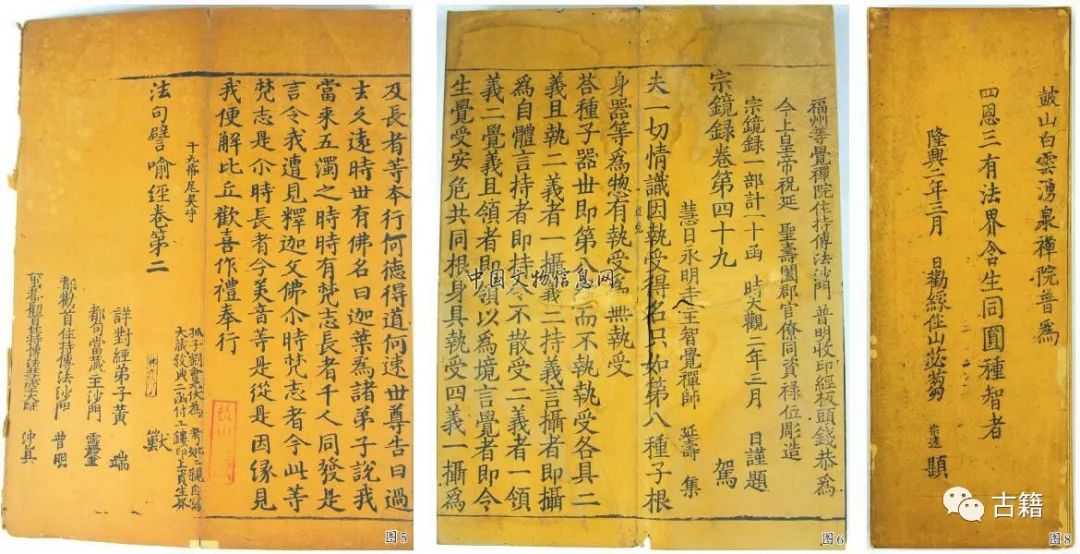 及長者等本行何德得道何速世尊告曰過
去久遠時世有佛名曰迦葉為諸弟子說我
當来五濁之時時有梵志長者千人同發是
言令我遭見釋迦文佛尒時梵志者今此等
梵志是尒時長者今美音等是從是因緣見
我便解比丘歡喜作禮奉行
法句譬喻經卷第二
獸
詳對經弟子黃端
都句當藏王沙門靈肇
都勸首住持傳法沙門普明
图5
福州等覺禪院住持傳法沙門普明收印經板頭錢恭為
今上皇帝祝延聖壽闔郡官僚同資禄位彫造
宗鏡録一部計一十函時大觀二年三月日謹題
宗鏡録卷第四十九
駕
慧日永明寺主智覺禪師延壽集
夫一切情識因執受得名只如第八種子根
身器等為惣有執受為無執受
荅種子器世即第八而不執執受各具二
義且執二義者一攝義二持義言攝者即攝
為自體言持者即持令不散受二義者一領
義二覺義且領者即領以為境言覺者即令
生覺受安危共同根身具執受四義一攝為
中国文物信息网
图6
鼓山白雲湧泉禪院普為
四恩三有法界含生同圓種智者
隆興二年三月日勸緣住山苾芻題
图8
古籍